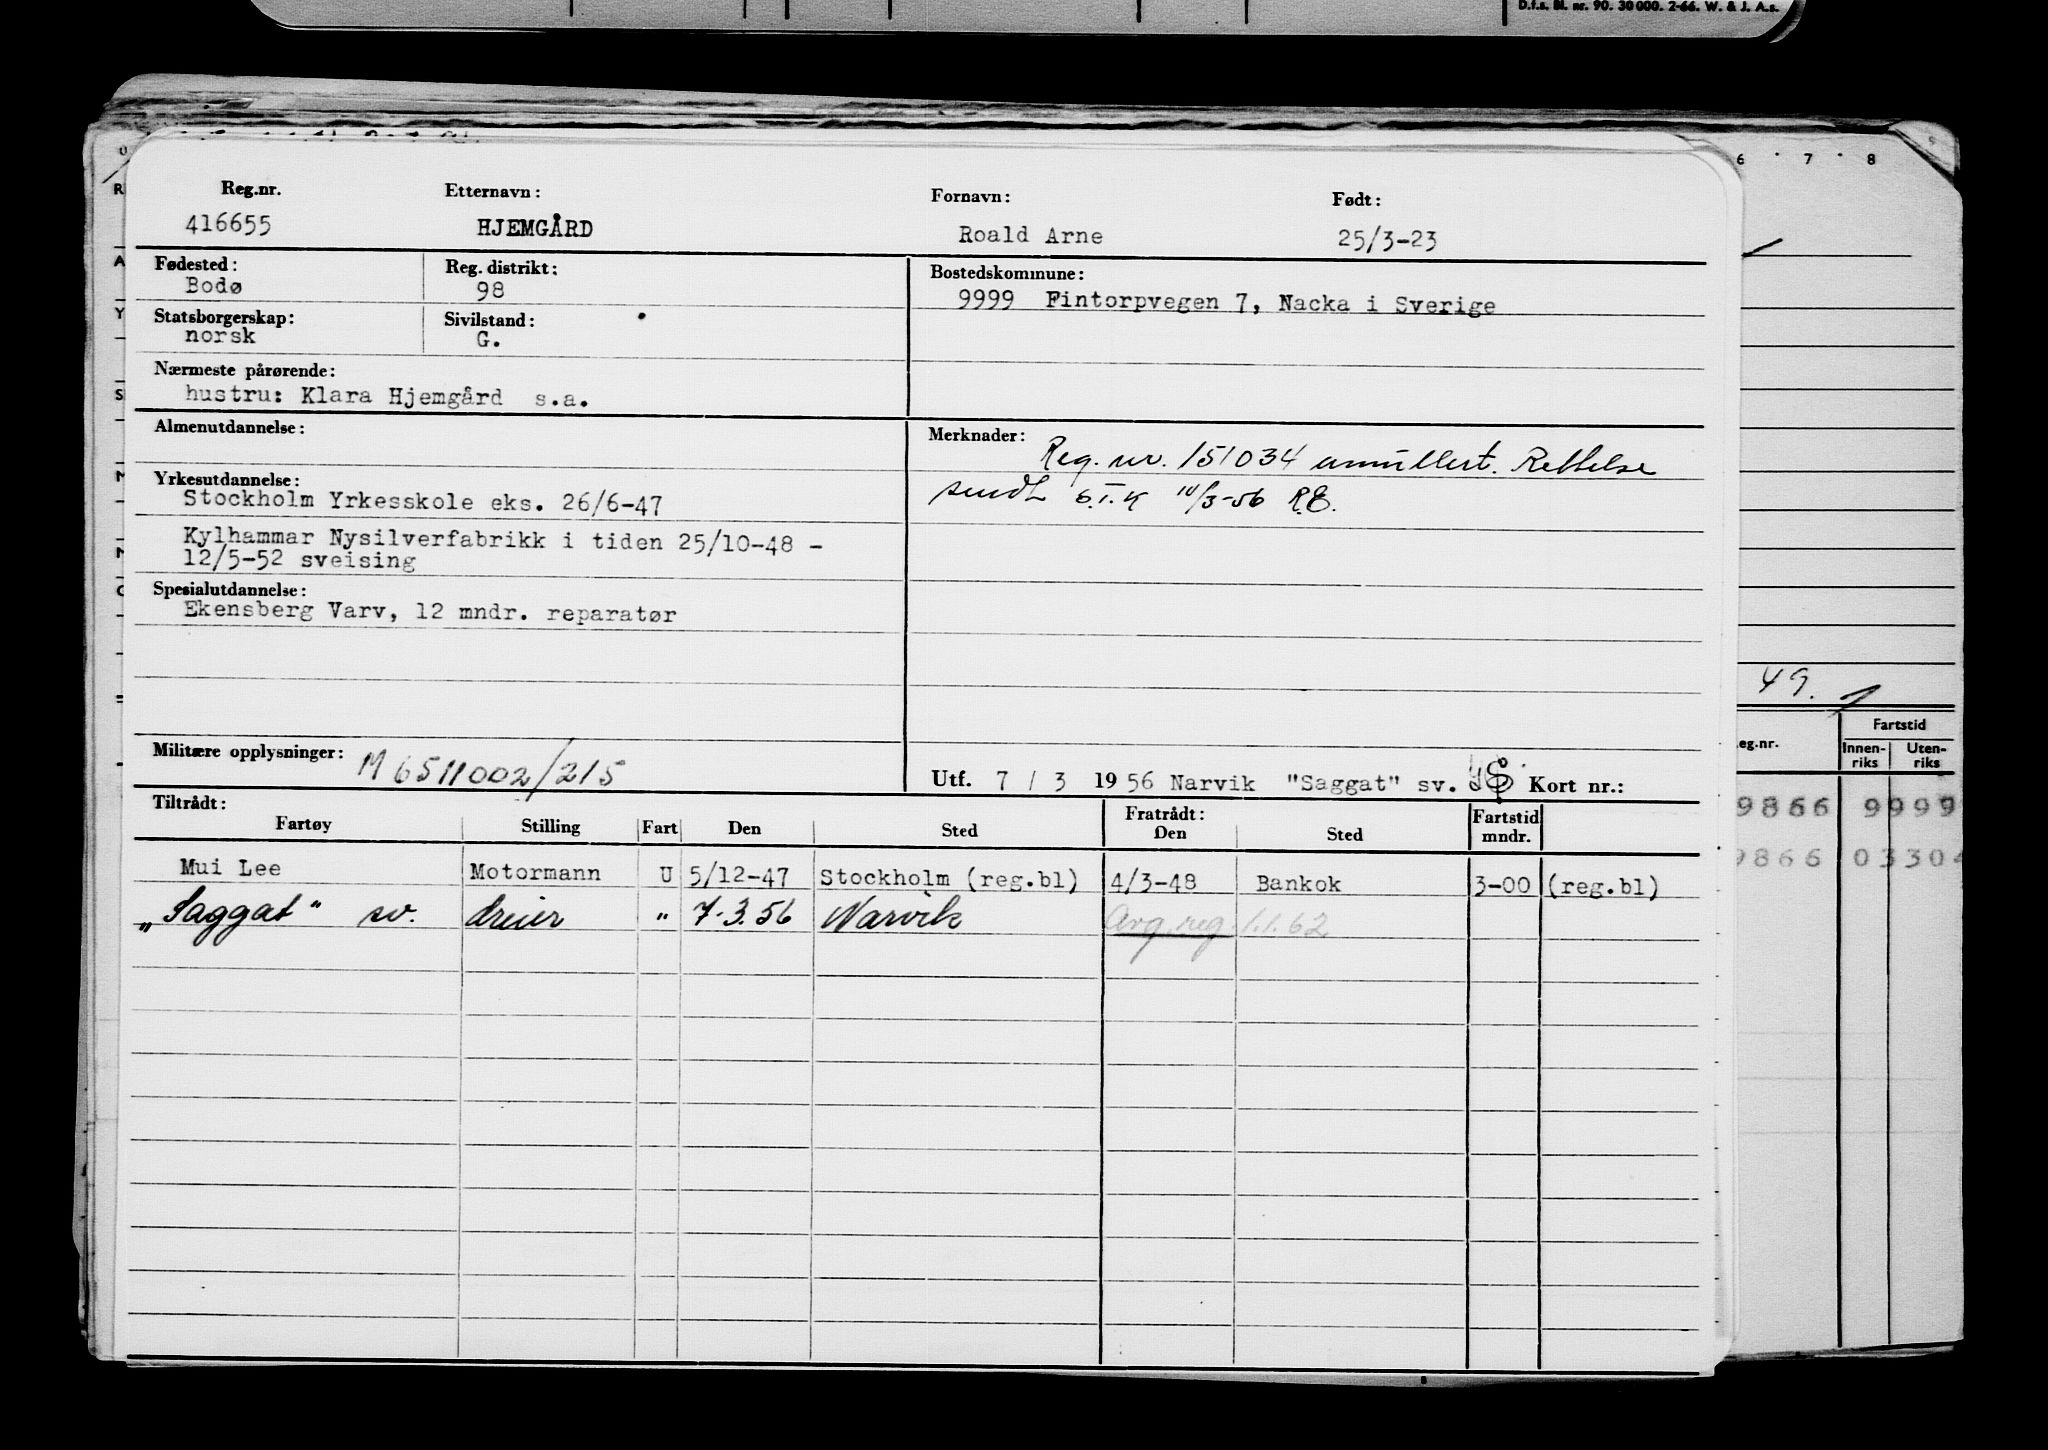 D.f.s. Bl. nr. 90. 30 000. 2-66. W. & J. A.s.
6 · 7 · 8
Reg.nr. Etternavn: Fornavn: Født:
416655 HJEMGÅRD Roald Arne 25/3-23
Fødested: Reg. distrikt: Bostedskommune:
Bodø 98 9999 Fintorpvegen 7, Nacka i Sverige
Statsborgerskap: Sivilstand:
norsk G.
Nærmeste pårørende:
hustru: Klara Hjemgård s.a.
Almenutdannelse: Merknader:
Reg. nr. 151034 annullert. Rettelse
sendt 10/3-56 R.E.
Yrkesutdannelse:
Stockholm Yrkesskole eks. 26/6-47
Kylhammar Nysilverfabrikk i tiden 25/10-48 -
12/5-52 sveising
Spesialutdannelse:
Ekensberg Varv, 12 mndr. reparatør
Militære opplysninger: M 6511002/215
Utf. 7 / 3 1956 Narvik "Saggat" sv. Kort nr.:
Tiltrådt: Fratrådt: Fartstid
Fartøy Stilling Fart Den Sted Den Sted mndr.
Mui Lee Motormann U 5/12-47 Stockholm (reg.bl) 4/3-48 Bankok 3-00 (reg.bl)
„Saggat" sv. dreier " 7-3.56 Narvik Avg. reg. 1.1.62
49.
eg.nr. Fartstid
Innen-riks Uten-riks
9866 9999
9866 03304